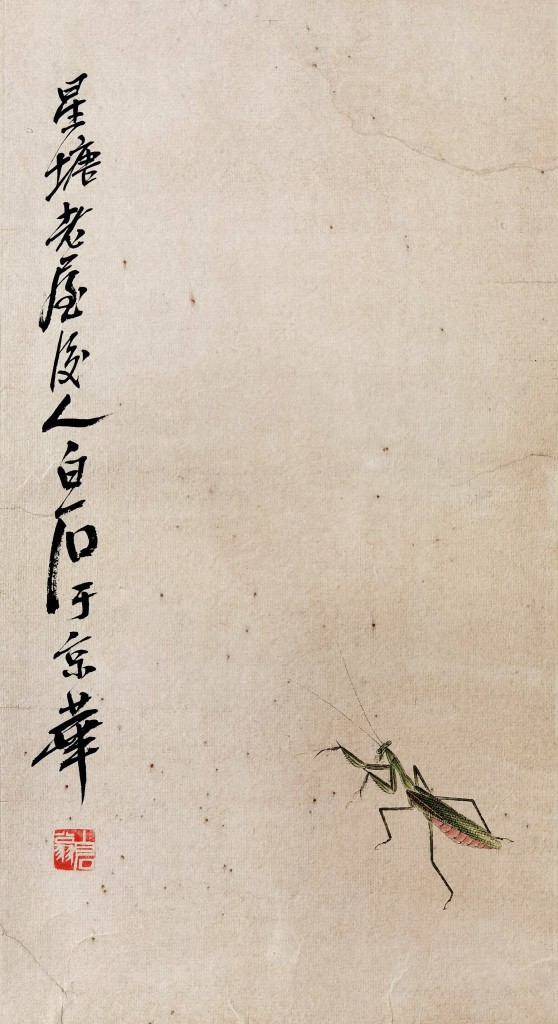 星塘老屋後人白石于京華